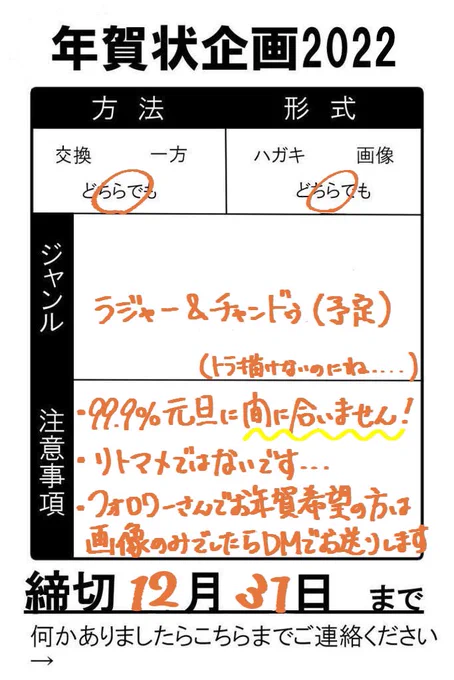 年賀状企画2022
方法 形式
交換 一方 ハガキ 画像
どちらでも どちらでも
ジャンル
ラジャー&チャンドゥ(予定)
(トラ描けないのにね....)
注意事項
・99.9%元旦に間に合いません!
・リトマメではないです...
・フォロワーさんでお年賀希望の方は
画像のみでしたらDMでお送りします
締切 12月 31日 まで
何かありましたらこちらまでご連絡ください
→